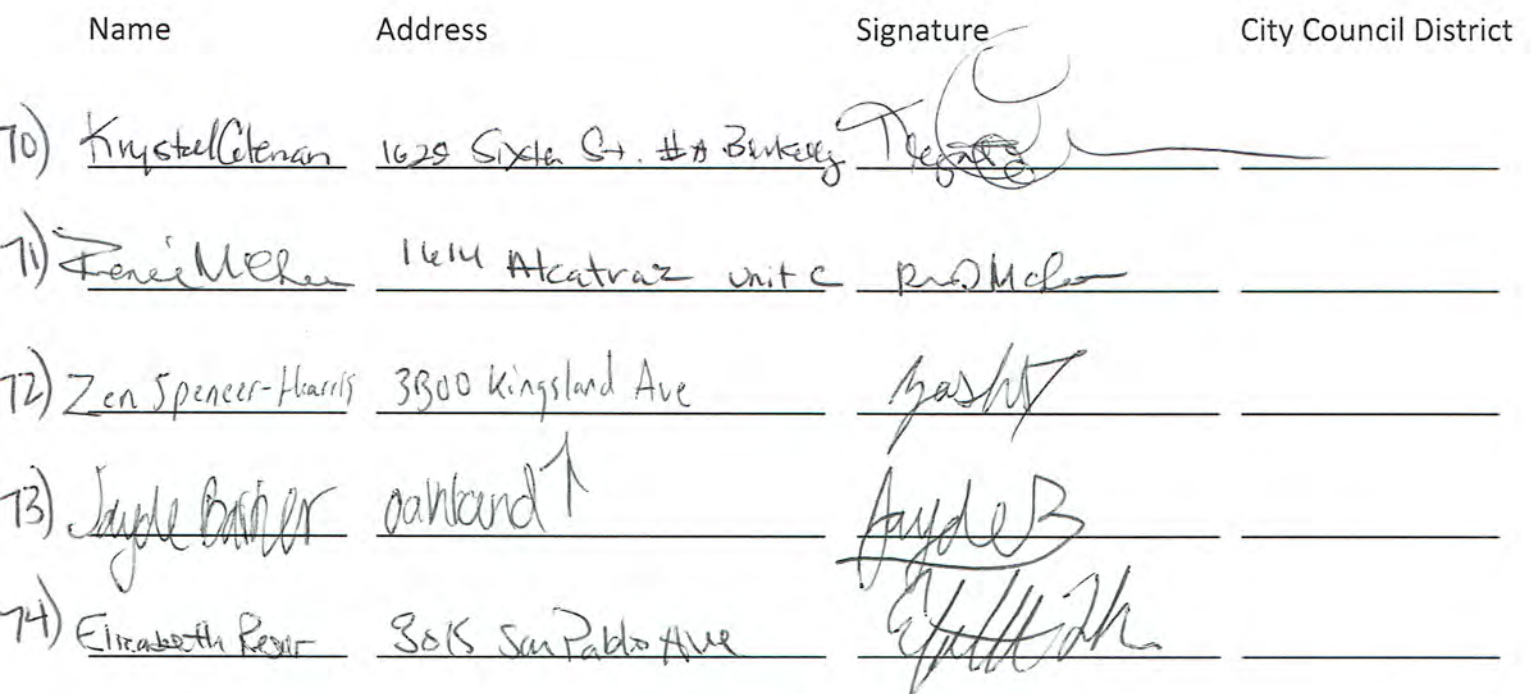 Name Address Signature City Council District
70) Krystal Coleman 1629 Sixth St. #A Berkeley
71) Renée McGhee 1614 Alcatraz unit C
72) Zen Spencer-Harris 3300 Kingsland Ave
73) Jayde Barber oakland ↑ Jayde B
74) Elizabeth 3015 San Pablo Ave